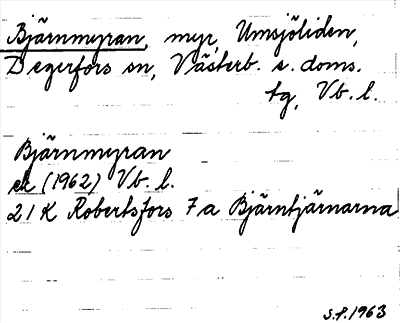 Bjärnmyran, myr, Umsjöliden,
Degerfors sn, Västerb. s. doms.
tg, Vb. l.
Bjärnmyran
ek (1962) Vb. l.
21 K Robertsfors 7a Bjärntjärnarna
S.P. 1963